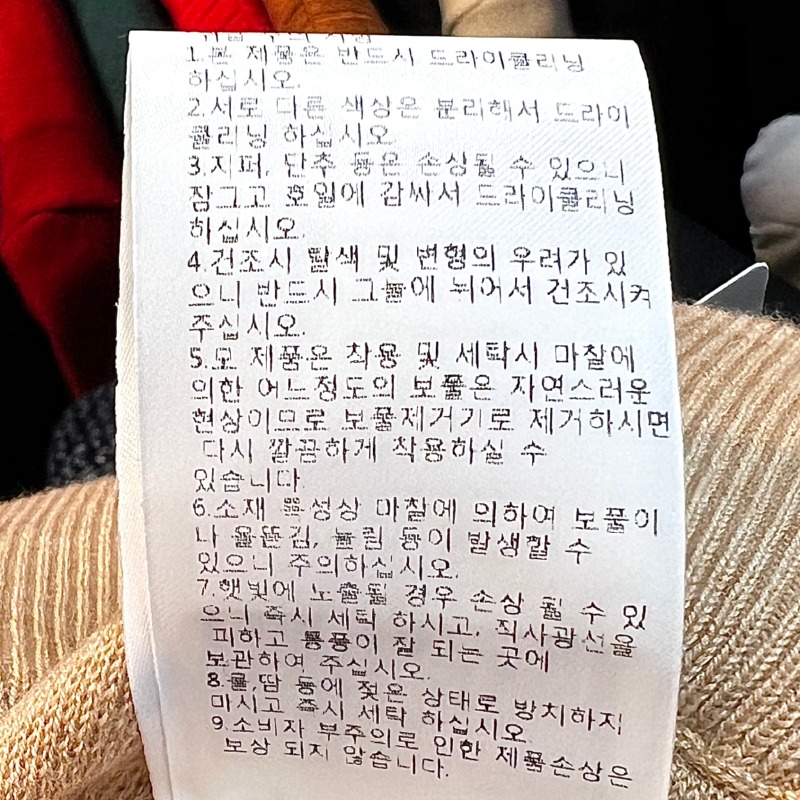 1.본 제품은 반드시 드라이클리닝
하십시오.
2.서로 다른 색상은 분리해서 드라이
클리닝 하십시오
3.지퍼, 단추 등은 손상될 수 있으니
잠그고 호일에 감싸서 드라이클리닝
하십시오.
4.건조시 탈색 및 변형의 우려가 있
으니 반드시 그늘에 뉘어서 건조시켜
주십시오.
5.모 제품은 착용 및 세탁시 마찰에
의한 어느정도의 보풀은 자연스러운
현상이므로 보풀제거기로 제거하시면
다시 깔끔하게 착용하실 수
있습니다.
6.소재 특성상 마찰에 의하여 보풀이
나 올뜯김, 눌림 등이 발생할 수
있으니 주의하십시오.
7.햇빛에 노출될 경우 손상 될 수 있
으니 즉시 세탁 하시고, 직사광선을
피하고 통풍이 잘 되는 곳에
보관하여 주십시오.
8.물,땀 등에 젖은 상태로 방치하지
마시고 즉시 세탁 하십시오.
9.소비자 부주의로 인한 제품손상은
보상 되지 않습니다.